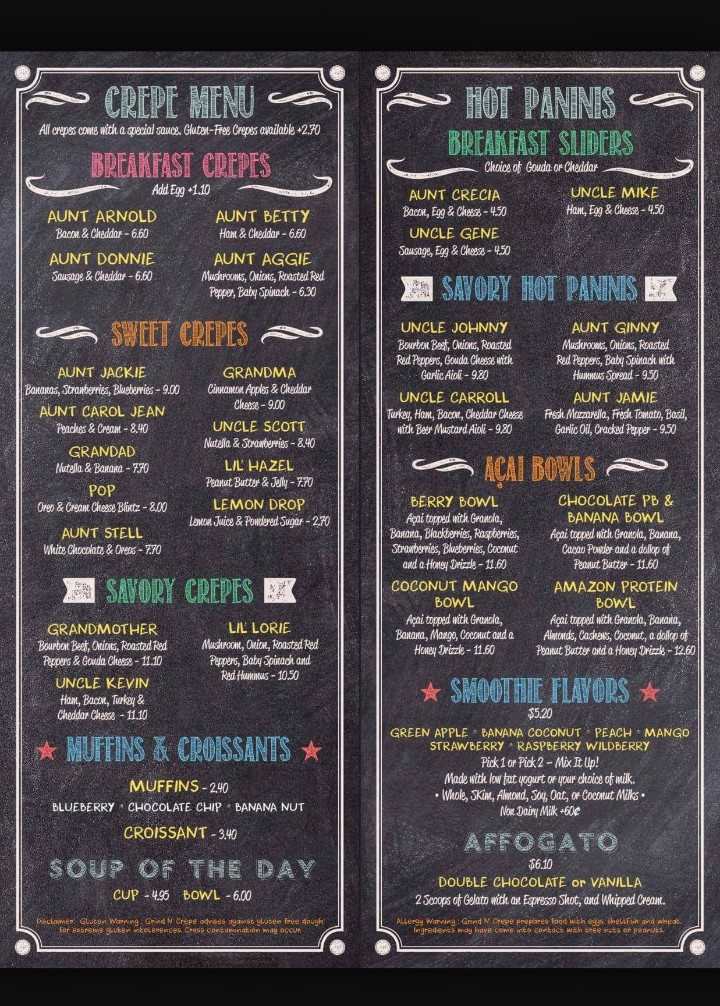 CREPE MENU
All crepes come with a special sauce. Gluten-Free Crepes available +2.70
BREAKFAST CREPES
Add Egg +1.10
AUNT ARNOLD
Bacon & Cheddar - 6.60
AUNT BETTY
Ham & Cheddar - 6.60
AUNT DONNIE
Sausage & Cheddar - 6.60
AUNT AGGIE
Mushrooms, Onions, Roasted Red
Pepper, Baby Spinach - 6.30
SWEET CREPES
AUNT JACKIE
Bananas, Strawberries, Blueberries - 9.00
AUNT CAROL JEAN
Peaches & Cream - 8.40
GRANDAD
Nutella & Banana - 7.70
POP
Oreo & Cream Cheese Blintz - 8.00
AUNT STELL
White Chocolate & Oreos - 7.70
GRANDMA
Cinnamon Apples & Cheddar
Cheese - 9.00
UNCLE SCOTT
Nutella & Strawberries - 8.40
LIL' HAZEL
Peanut Butter & Jelly - 7.70
LEMON DROP
Lemon Juice & Powdered Sugar - 2.70
SAVORY CREPES
GRANDMOTHER
Bourbon Beef, Onions, Roasted Red
Peppers & Gouda Cheese - 11.10
UNCLE KEVIN
Ham, Bacon, Turkey &
Cheddar Cheese - 11.10
LIL' LORIE
Mushroom, Onion, Roasted Red
Peppers, Baby Spinach and
Red Hummus - 10.50
MUFFINS & CROISSANTS
MUFFINS - 2.40
BLUEBERRY * CHOCOLATE CHIP * BANANA NUT
CROISSANT - 3.40
SOUP OF THE DAY
CUP - 4.95 BOWL - 6.00
Disclaimer: Gluten Warning: Grind N Crepe advises against gluten free dough
for extreme gluten intolerences. Cross contamination may occur.
HOT PANINIS
BREAKFAST SLIDERS
Choice of Gouda or Cheddar
AUNT CRECIA
Bacon, Egg & Cheese - 4.50
UNCLE MIKE
Ham, Egg & Cheese - 4.50
UNCLE GENE
Sausage, Egg & Cheese - 4.50
SAVORY HOT PANINIS
UNCLE JOHNNY
Bourbon Beef, Onions, Roasted
Red Peppers, Gouda Cheese with
Garlic Aioli - 9.80
AUNT GINNY
Mushrooms, Onions, Roasted
Red Peppers, Baby Spinach with
Hummus Spread - 9.50
UNCLE CARROLL
Turkey, Ham, Bacon, Cheddar Cheese
with Beer Mustard Aioli - 9.80
AUNT JAMIE
Fresh Mozzarella, Fresh Tomato, Basil,
Garlic Oil, Cracked Pepper - 9.50
AÇAI BOWLS
BERRY BOWL
Açai topped with Granola,
Banana, Blackberries, Raspberries,
Strawberries, Blueberries, Coconut
and a Honey Drizzle - 11.60
CHOCOLATE PB &
BANANA BOWL
Açai topped with Granola, Banana,
Cacau Powder and a dollop of
Peanut Butter - 11.60
COCONUT MANGO
BOWL
Açai topped with Granola,
Banana, Mango, Coconut and a
Honey Drizzle - 11.60
AMAZON PROTEIN
BOWL
Açai topped with Granola, Banana,
Almonds, Cashews, Coconut, a dollop of
Peanut Butter and a Honey Drizzle - 12.60
SMOOTHIE FLAVORS
$5.20
GREEN APPLE * BANANA COCONUT * PEACH * MANGO
STRAWBERRY * RASPBERRY WILDBERRY
Pick 1 or Pick 2 - Mix It Up!
Made with low fat yogurt or your choice of milk.
• Whole, Skim, Almond, Soy, Oat, or Coconut Milks •
Non Dairy Milk +60¢
AFFOGATO
$6.10
DOUBLE CHOCOLATE or VANILLA
2 Scoops of Gelato with an Espresso Shot, and Whipped Cream.
Allergy Warning: Grind N Crepe prepares food with eggs, shellfish and wheat.
Ingredients may have come into contact with tree nuts or peanuts.